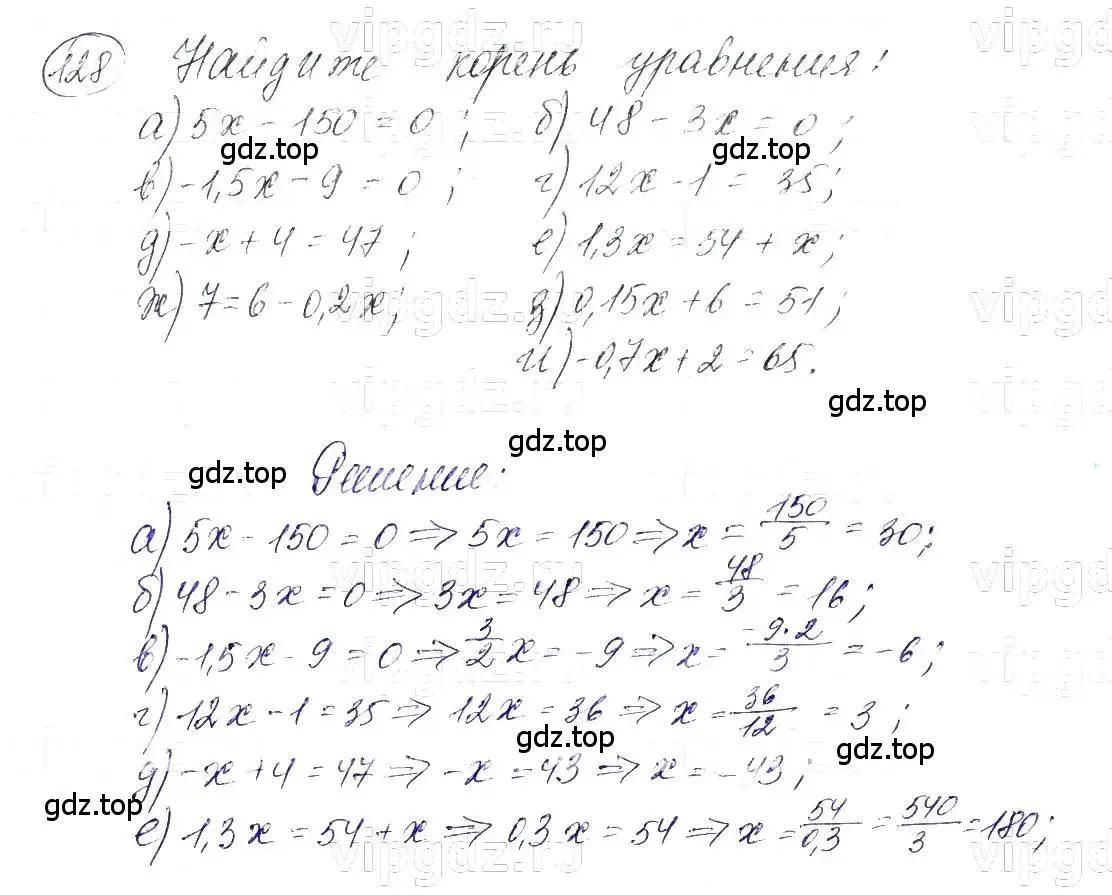 128 Найдите корень уравнения:
а) 5x - 150 = 0; б) 48 - 3x = 0;
gdz.top gdz.top
в) -1,5x - 9 = 0; г) 12x - 1 = 35;
д) -x + 4 = 47; е) 1,3x = 54 + x;
ж) 7 = 6 - 0,2x; з) 0,15x + 6 = 51;
и) -0,7x + 2 = 65.
gdz.top
gdz.top
gdz.top Решение:
а) 5x - 150 = 0 => 5x = 150 => x = 150/5 = 30;
б) 48 - 3x = 0 => 3x = 48 => x = 48/3 = 16;
в) -1,5x - 9 = 0 => 3/2 x = -9 => x = -9·2/3 = -6;
г) 12x - 1 = 35 => 12x = 36 => x = 36/12 = 3;
gdz.top gdz.top
д) -x + 4 = 47 => -x = 43 => x = -43;
gdz.top
е) 1,3x = 54 + x => 0,3x = 54 => x = 54/0,3 = 540/3 = 180;